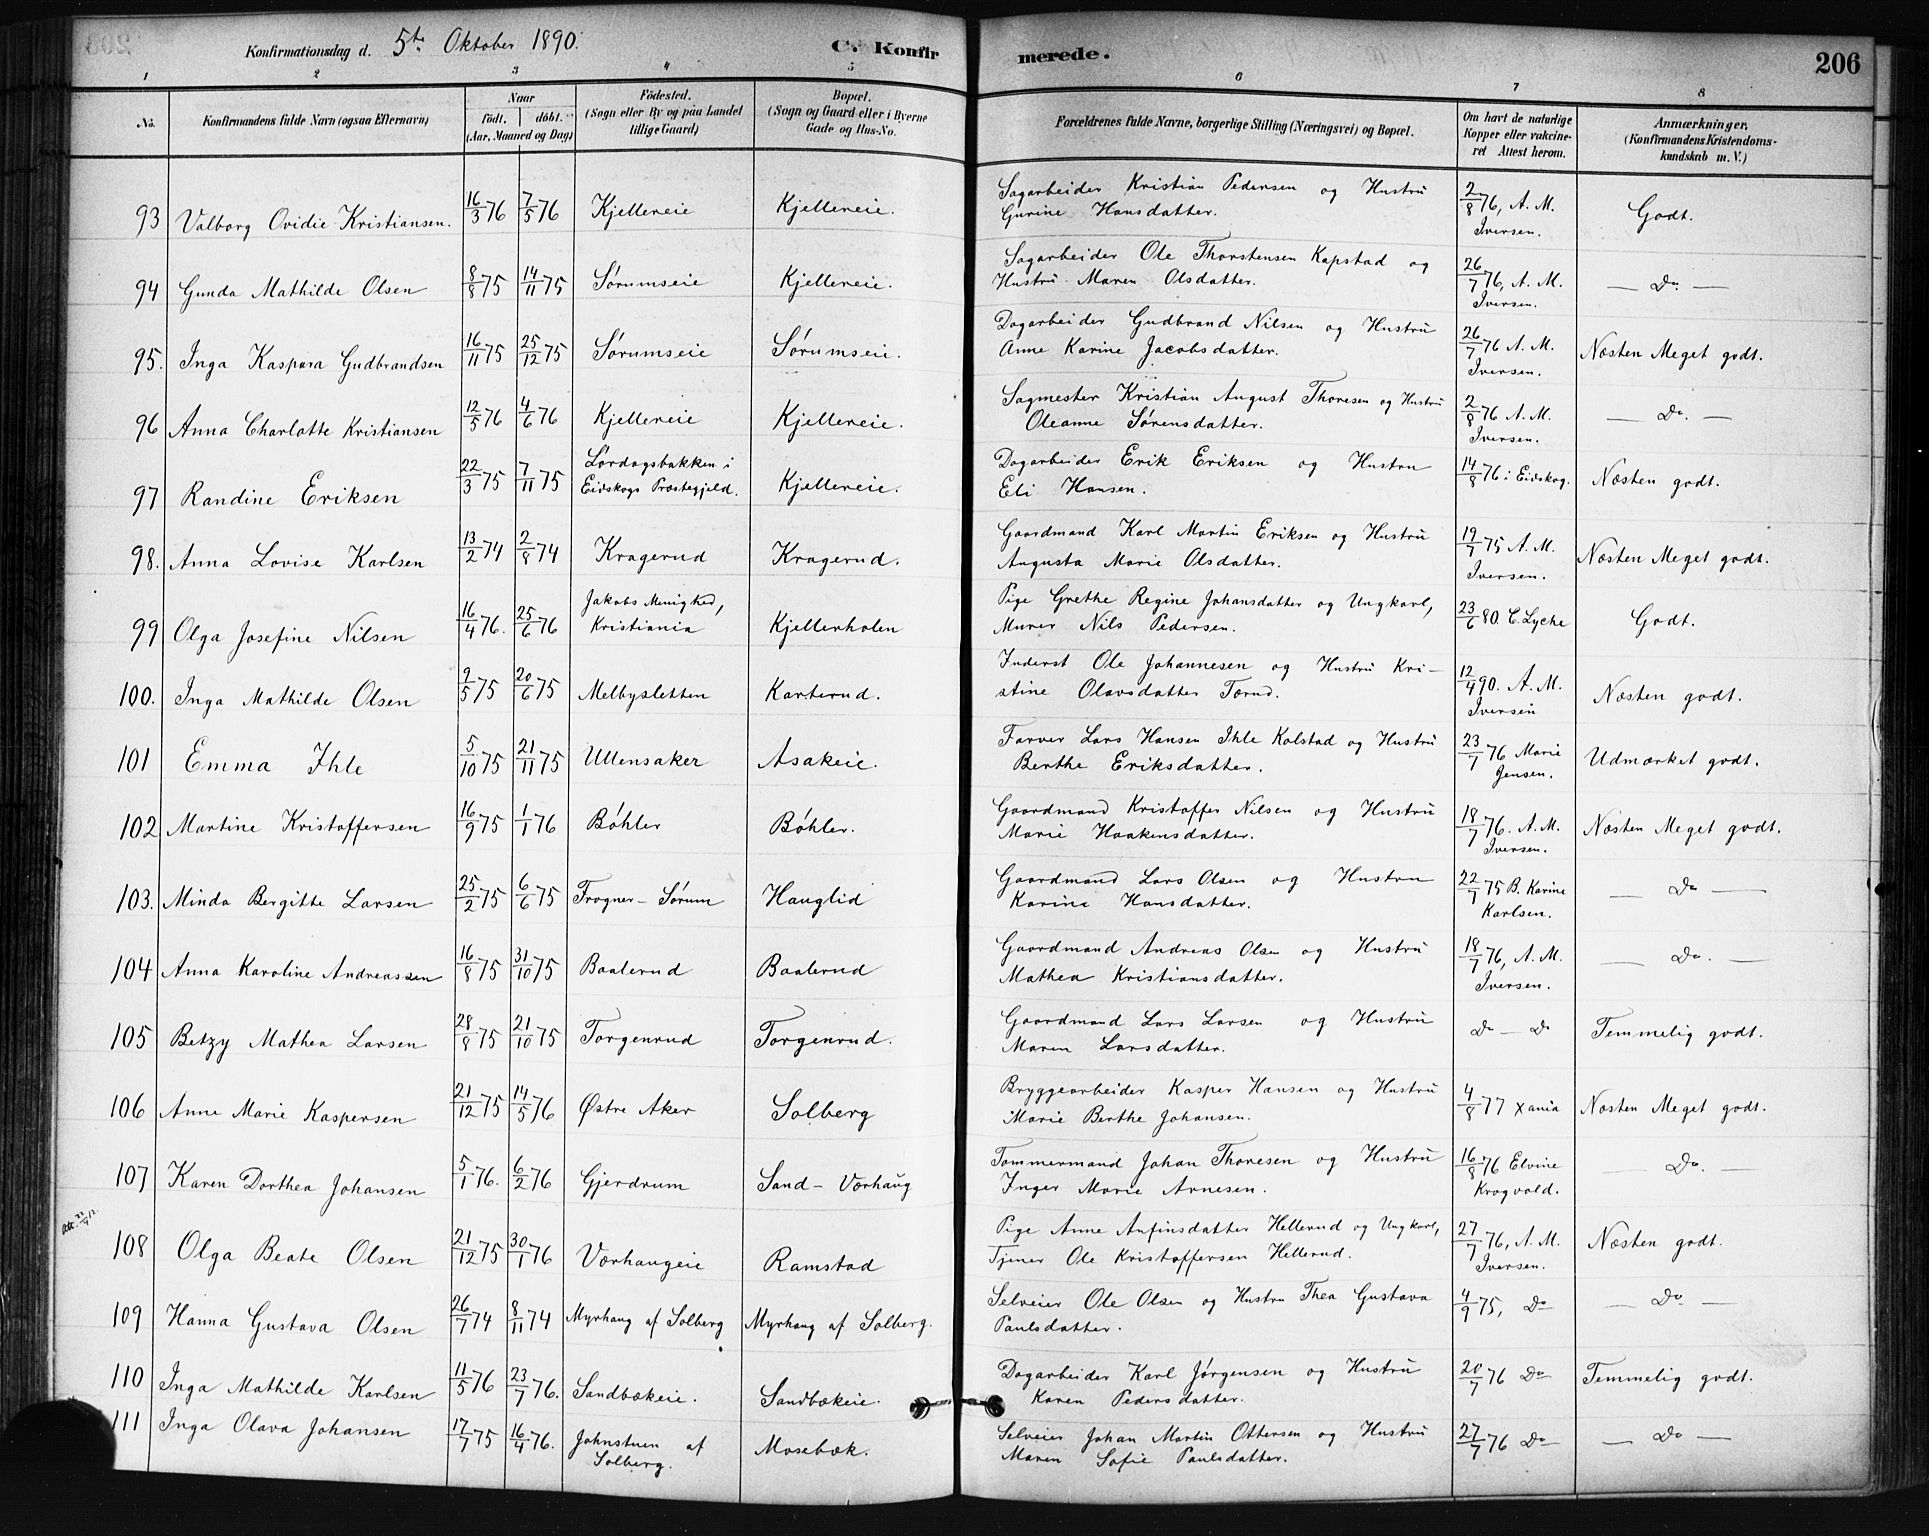 Konfirmationsdag d. 5te Oktober 1890.
C. Konfirmerede.
206
1 2 3 4 5 6 7 8
No.
Konfirmandens fulde Navn (ogsaa Efternavn)
Naar
født. døbt.
(Aar, Maaned og Dag)
Fødested.
(Sogn eller By og paa Landet
tillige Gaard)
Bopæl.
(Sogn og Gaard eller i Byerne
Gade og Hus-No.
Forældrenes fulde Navne, borgerlige Stilling (Næringsvei) og Bopæl.
Om havt de naturlige
Kopper eller vakcine-
ret Attest herom.
Anmærkninger.
(Konfirmandens Kristendoms-
kundskab m. V.)
93 Valborg Ovidie Kristiansen. 16/3 76 7/5 76 Kjellereie Kjellereie. Sagarbeider Kristian Pedersen og Hustru
Gurine Hansdatter. 2/8 76, A. M.
Iversen. Godt.
94 Gunda Mathilde Olsen 8/8 75 14/11 75 Sørumseie Kjellereie. Sagarbeider Ole Thorstensen Kapstad og
Hustru Maren Olsdatter. 26/7 76, A. M.
Iversen. — Do —
95. Inga Kaspara Gudbrandsen 16/11 75 25/12 75 Sørumseie Sørumseie. Dagarbeider Gudbrand Nilsen og Hustru
Anne Karine Jacobsdatter. 26/7 76 A. M.
Iversen. Næsten Meget godt.
96 Anna Charlotte Kristiansen 12/5 76 4/6 76 Kjellereie Kjellereie. Sagmester Kristian August Thoresen og Hustru
Oleanne Sørensdatter. 2/8 76 A. M.
Iversen. — Do. —
97 Randine Eriksen 22/3 75 7/11 75 Lørdagsbakken i
Eidskogs Præstegjeld. Kjellereie. Dagarbeider Erik Eriksen og Hustru
Eli Hansen. 14/8 76 i Eidskog. Næsten godt.
98. Anna Lovise Karlsen 13/2 74 2/8 74 Kragerud Kragerud. Gaardmand Karl Martin Eriksen og Hustru
Augusta Marie Olsdatter. 19/7 75 A. M.
Iversen. Næsten Meget godt.
99 Olga Josefine Nilsen 16/4 76. 25/6 76 Jakobs Menighed,
Kristiania Kjellerholen Pige Grethe Regine Johansdatter og Ungkarl,
Murer Nils Pedersen. 23/6 80. C. Lyche Godt.
100. Inga Mathilde Olsen 9/5 75 20/6 75 Melbysletten Karterud. Inderst Ole Johannesen og Hustru Kri-
stine Olavsdatter Tærud. 12/4 90. A. M.
Iversen Næsten godt.
101 Emma Ihle 5/10 75 21/11 75 Ullensaker Asakeie. Farver Lars Hansen Ihle Kolstad og Hustru
Berthe Eriksdatter. 23/7 76 Marie
Jensen. Udmærket godt.
102 Martine Kristoffersen 16/9 75 1/1 76 Bøhler Bøhler. Gaardmand Kristoffer Nilsen og Hustru
Marie Haakensdatter. 18/7 76. A. M.
Iversen. Næsten Meget godt.
103. Minda Bergitte Larsen 25/2 75 6/6 75 Frogner - Sørum Hauglid Gaardmand Lars Olsen og Hustru
Karine Hansdatter. 22/7 75 B. Karine
Karlsen. — Do —
104 Anna Karoline Andreassen 16/8 75 31/10 75 Baalerud Baalerud Gaardmand Andreas Olsen og Hustru
Mathea Kristiansdatter. 18/7 76, A. M.
Iversen. — Do. —
105 Betzy Mathea Larsen 28/8 75 21/10 75 Torgenrud Torgenrud. Gaardmand Lars Larsen og Hustru
Maren Larsdatter. Do — Do Temmelig godt.
106 Anne Marie Kaspersen 21/12 75 14/5 76 Østre Aker Solberg Bryggearbeider Kasper Hansen og Hustru
Marie Berthe Johansen. 4/8 77 Xania Næsten Meget godt.
107 Karen Dorthea Johansen 5/1 76. 6/2 76 Gjerdrum Sand - Vorhaug Tømmermand Johan Thoresen og Hustru
Inger Marie Arnesen. 16/8 76 Elvine
Krogvold. — Do. —
108 Olga Beate Olsen 21/12 75 30/1 76 Vorhaugeie Ramstad Pige Anne Anfinsdatter Hellerud og Ungkarl,
Tjener Ole Kristoffersen Hellerud. 27/7 76, A. M.
Iversen. Næsten godt.
109 Hanna Gustava Olsen 26/7 74 8/11 74 Myrhaug af Solberg Myrhaug af Solberg. Selveier Ole Olsen og Hustru Thea Gustava
Paulsdatter. 4/9 75, Do — Do —
110 Inga Mathilde Karlsen 11/5 76 23/7 76. Sandbækeie. Sandbækeie. Dagarbeider Karl Jørgensen og Hustru
Karen Pedersdatter. 20/7 76 Do Temmelig godt.
111 Inga Olava Johansen 17/7 75 16/4 76. Johnstuen af
Solberg. Mosebæk. Selveier Johan Martin Ottersen og Hustru
Maren Sofie Paulsdatter. 27/7 76 Do — Do —